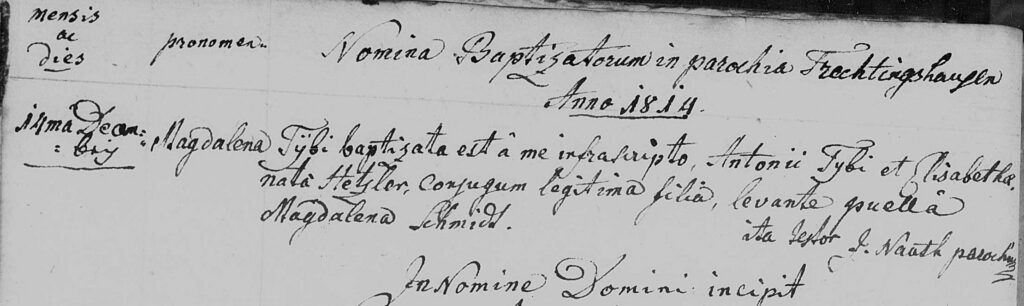 mensis
ac
dies
pronomen.
Nomina Baptizatorum in parochia Trechtingshausen
Anno 1814.
14ma Decem=
=bris
Magdalena Tÿbi baptizata est â me infrascripto, Antonii Tÿbi et Elisabethæ
natâ Hetzler, Conjugum legitima filia, levante puellâ
Magdalena Schmidt.
ita testor J. Naath parochus
In Nomine Domini incipit